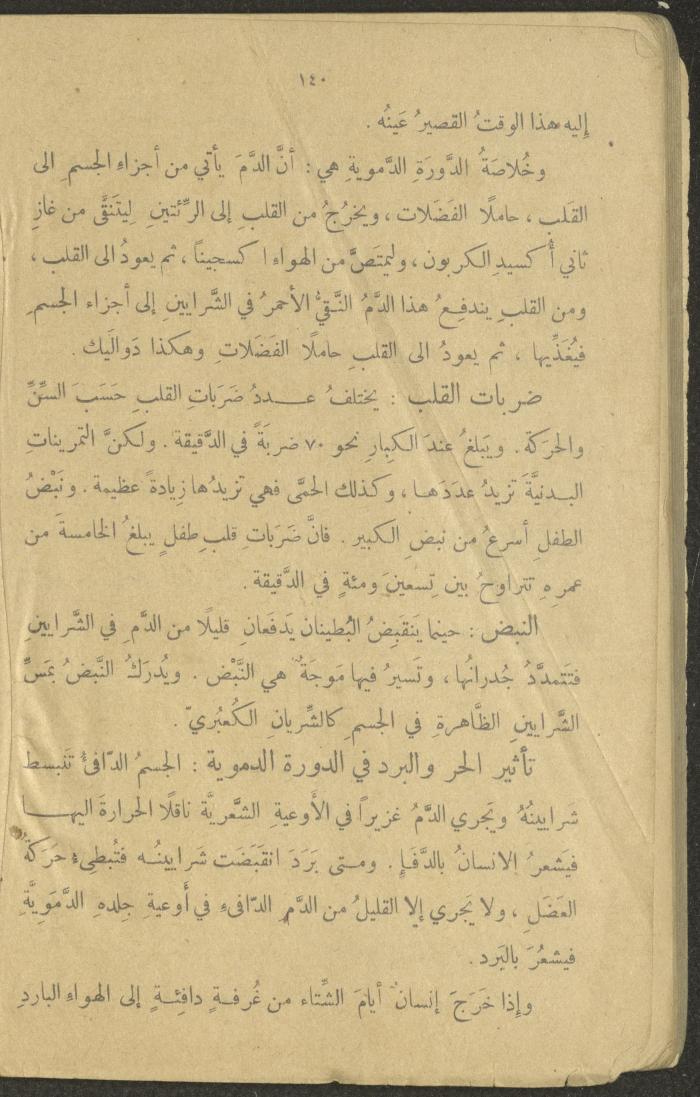 ١٤٠
إليه هذا الوقتُ القصيرُ عَينُه .
وخُلاصَةُ الدَّورَةِ الدَّمويةِ هي : أنَّ الدَّمَ يأتي من أجزاءِ الجسمِ الى
القَلبِ ، حاملًا الفَضَلات ، ويخرُجُ من القلبِ إلى الرِّئتينِ لِيَتَنَقَّى من غازِ
ثاني أُكسيدِ الكربون ، وليمتَصَّ من الهواءِ اكسجيناً ، ثم يعودُ الى القلب ،
ومن القلبِ يندفِعُ هذا الدَّمُ النَّقيُّ الأحمرُ في الشَّرايينِ إلى أجزاء الجسمِ
فيُغَذِّيها ، ثم يعودُ الى القلبِ حاملًا الفَضَلاتِ وهكذا دَوالَيك .
ضربات القلب : يختلفُ عددُ ضَرَباتِ القلبِ حَسَبَ السِّنِّ
والحرَكَة . ويَبلغُ عندَ الكبارِ نحو ٧٠ ضربَةً في الدَّقيقة . ولكنَّ التمريناتِ
البدنيَّةَ تزيدُ عدَدَها ، وكذلك الحمَّى فهي تزيدُها زيادةً عظيمة . ونَبْضُ
الطفلِ أسرعُ من نبضِ الكبير . فانَّ ضَرَباتِ قلبِ طفلٍ يبلغُ الخامسةَ من
عمرِهِ تتراوحُ بين تِسعينَ ومئةٍ في الدَّقيقة .
النبض : حينما يَنقبِضُ البُطينان يَدفَعانِ قليلًا من الدَّمِ في الشَّرايينِ
فتَتَمدَّدُ جُدرانُها ، وتَسيرُ فيها مَوجَةٌ هي النَّبْض . ويُدرَكُ النَّبضُ بمَسِّ
الشَّرايينِ الظَّاهرةِ في الجسمِ كالشِّريانِ الكُعبُريّ .
تأثير الحر والبرد في الدورة الدموية : الجسمُ الدّافئُ تَنبسط
شَرايينُهُ ويَجري الدَّمُ غزيراً في الأَوعيةِ الشَّعريَّة ناقلًا الحرارةَ اليها
فيَشعرُ الانسانُ بالدَّفَإِ . ومتى بَرَدَ انقبَضَت شَرايينُه فتُبطىءُ حرَكةُ
العَضَلِ ، ولا يجري إلا القليلُ من الدَّمِ الدّافىءِ في أَوعيةِ جِلدهِ الدَّمَويَّةِ
فيشعُرَ بالبَرد .
وإِذا خَرَجَ إنسانٌ أيامَ الشِّتاء من غُرفةٍ دافِئةٍ إلى الهواءِ الباردِ